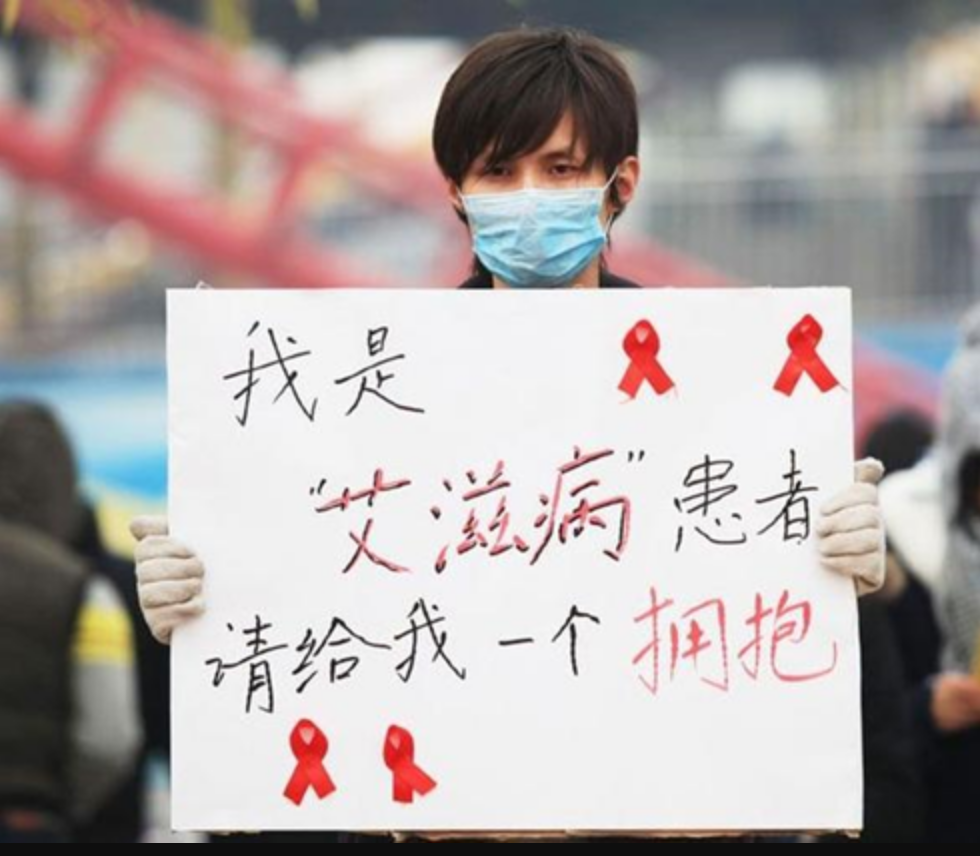 我是
"艾滋病"患者
请给我一个拥抱